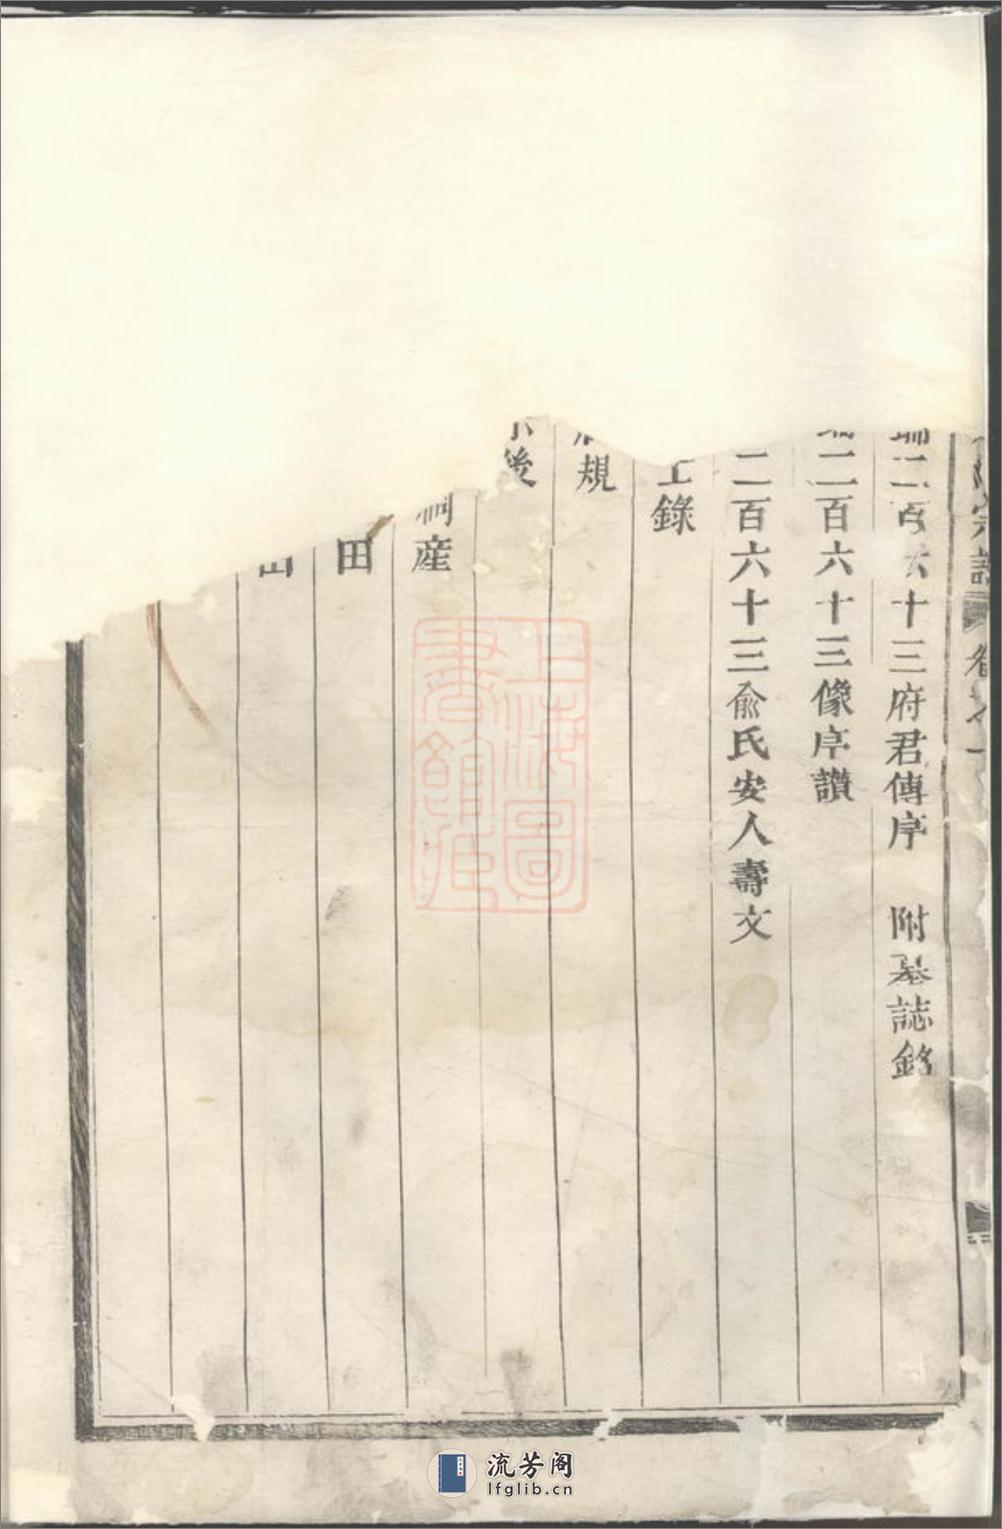 宗譜 卷之一
瑞二百六十三府君傳序 附墓誌銘
二百六十三像序讚
二百六十三俞氏安人壽文
錄
規
後
祠產
田
山
上海圖書館藏
流芳阁
lfglib.cn